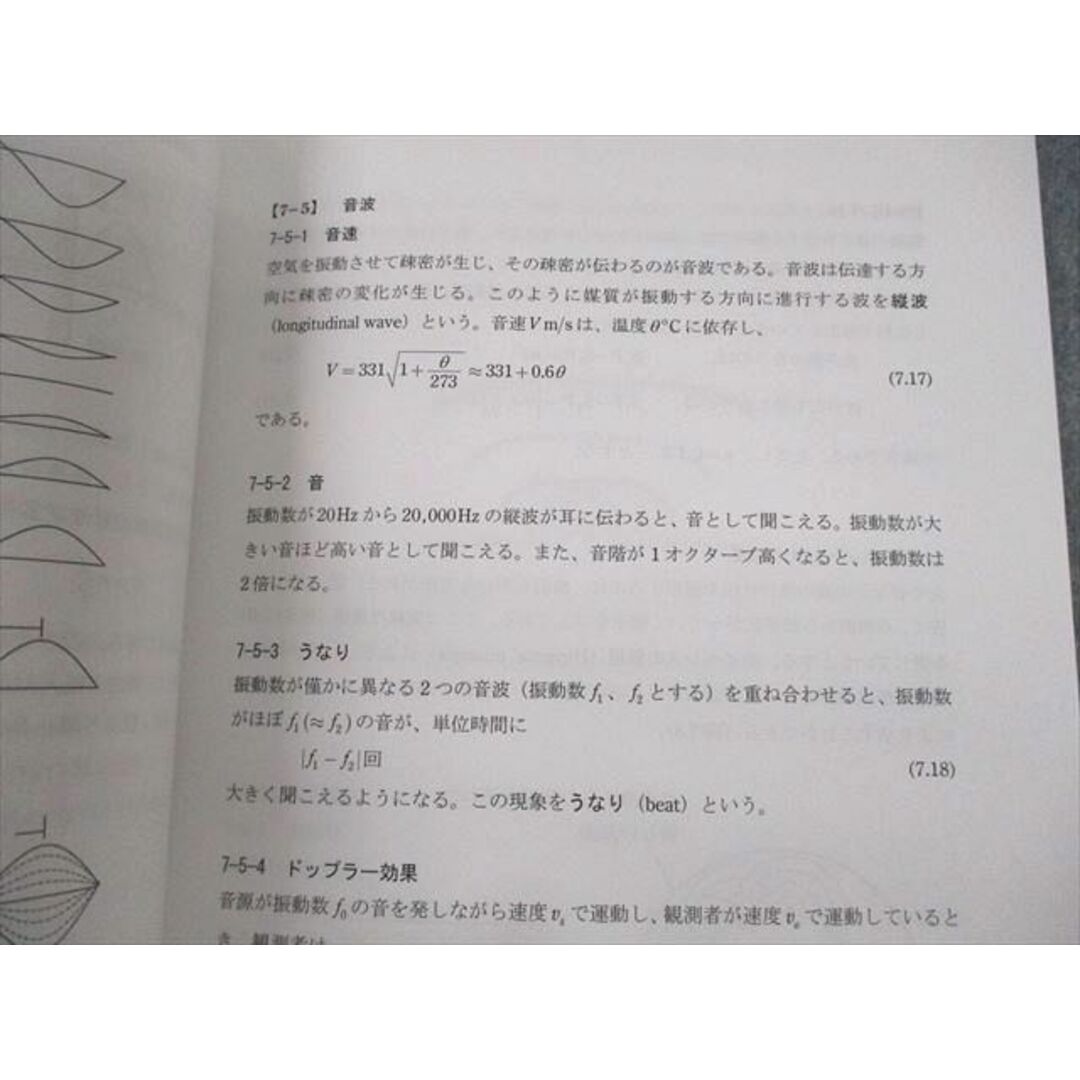 【7-5】 音波
7-5-1 音速
空気を振動させて疎密が生じ、その疎密が伝わるのが音波である。音波は伝達する方
向に疎密の変化が生じる。このように媒質が振動する方向に進行する波を縦波
（longitudinal wave）という。音速V m/sは、温度θ°Cに依存し、
V＝331√(1＋θ/273)≈331＋0.6θ (7.17)
である。
7-5-2 音
振動数が20Hzから20,000Hzの縦波が耳に伝わると、音として聞こえる。振動数が大
きい音ほど高い音として聞こえる。また、音階が1オクターブ高くなると、振動数は
2倍になる。
7-5-3 うなり
振動数が僅かに異なる2つの音波（振動数f₁、f₂とする）を重ね合わせると、振動数
がほぼf₁(≈f₂)の音が、単位時間に
|f₁－f₂|回 (7.18)
大きく聞こえるようになる。この現象をうなり（beat）という。
7-5-4 ドップラー効果
音源が振動数f₀の音を発しながら速度vₛで運動し、観測者が速度vₒで運動していると
き、観測者は